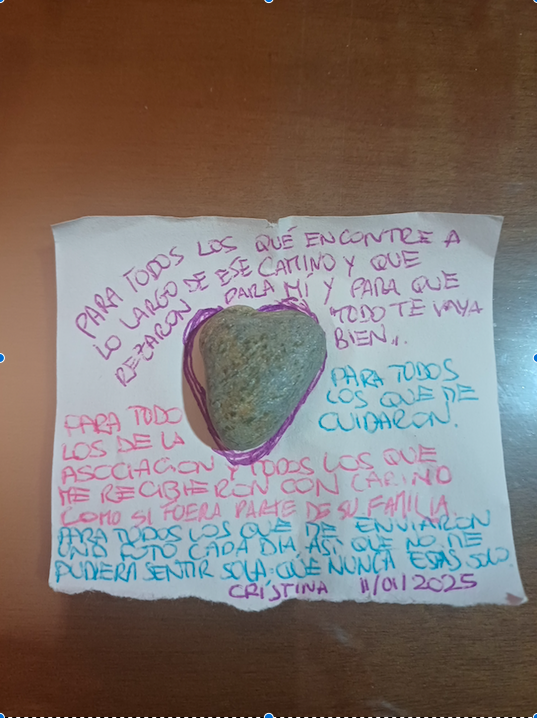 PARA TODOS LOS QUE ENCONTRE A
LO LARGO DE ESE CAMINO Y QUE
REZARON PARA MÍ Y PARA QUE
TODO TE VAYA
BIEN..
PARA TODOS
LOS QUE ME
CUIDARON.
PARA TODO
LOS DE LA
ASOCIACION Y TODOS LOS QUE
ME RECIBIERON CON CARINO
COMO SI FUERA PARTE DE SU FAMILIA.
PARA TODOS LOS QUE ME ENVIARON
UNO FOTO CADA DIA, ASI QUE NO ME
PUDIERA SENTIR SOLA: QUE NUNCA ESTAS SOLO.
CRISTINA 11/01/2025